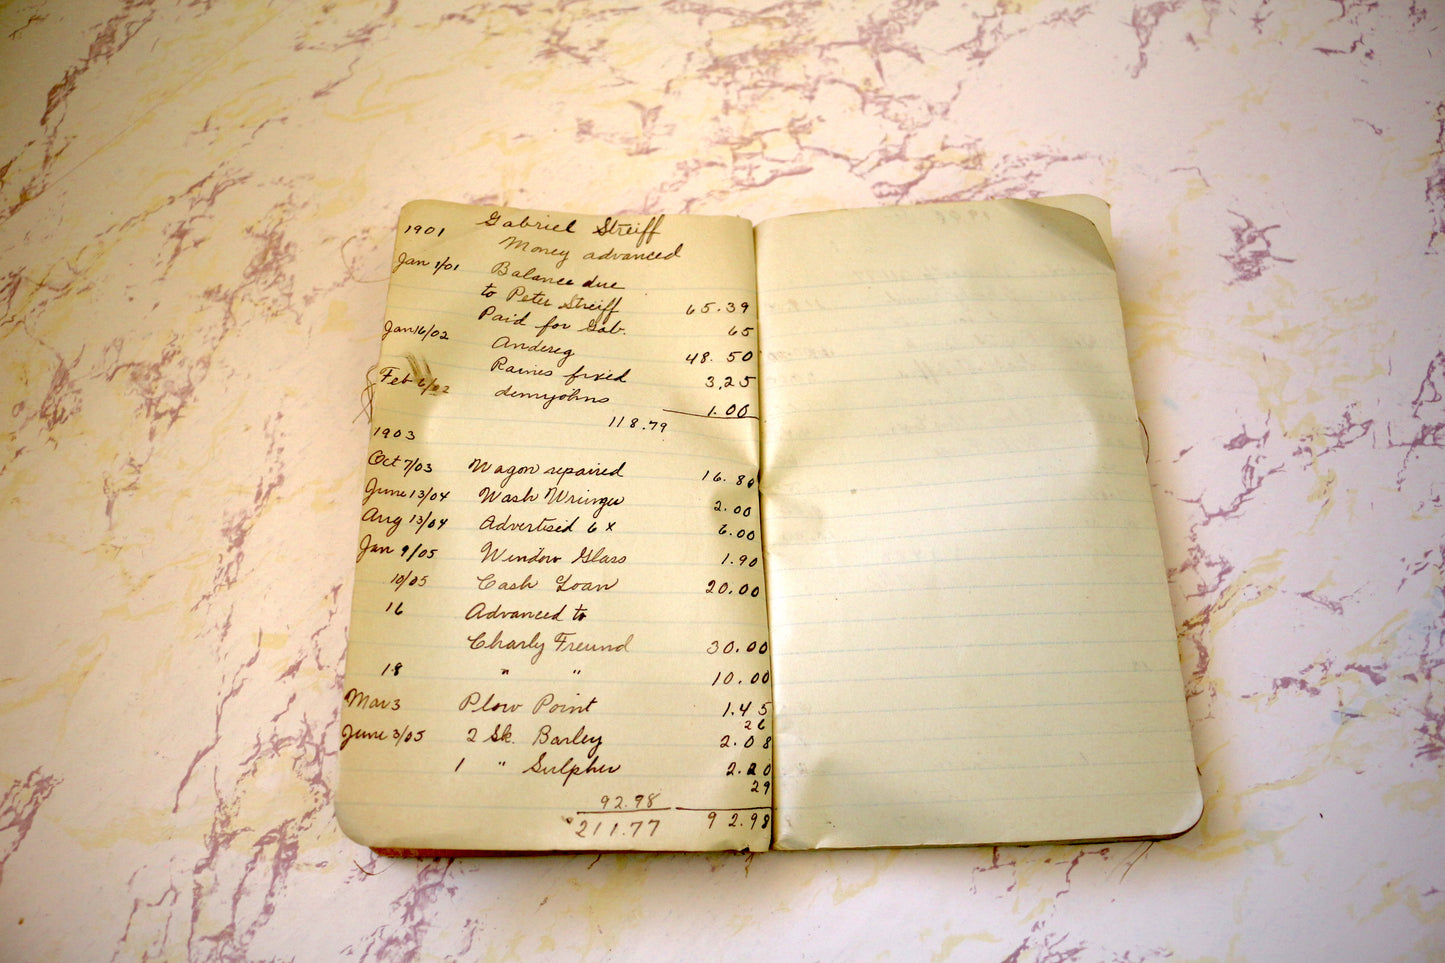 1901 Gabriel Streiff
Money advanced
Jan 1/01 Balance due
to Peter Streiff 65.39
Paid for Gab. 65
Jan 16/02 Andereg 48.50
Raines fixed 3.25
Feb 6/02 demyjohns 1.00
118.79
1903
Oct 7/03 Wagon repaired 16.80
June 13/04 Wash Wringer 2.00
Aug 13/04 Advertised 6 x 6.00
Jan 9/05 Window Glass 1.90
10/05 Cash Loan 20.00
16 Advanced to
Charly Freund 30.00
18 " " 10.00
Mar 3 Plow Point 1.45
26
June 3/05 2 Sk. Barley 2.08
1 " Sulpher 2.20
29
92.98 92.98
211.77